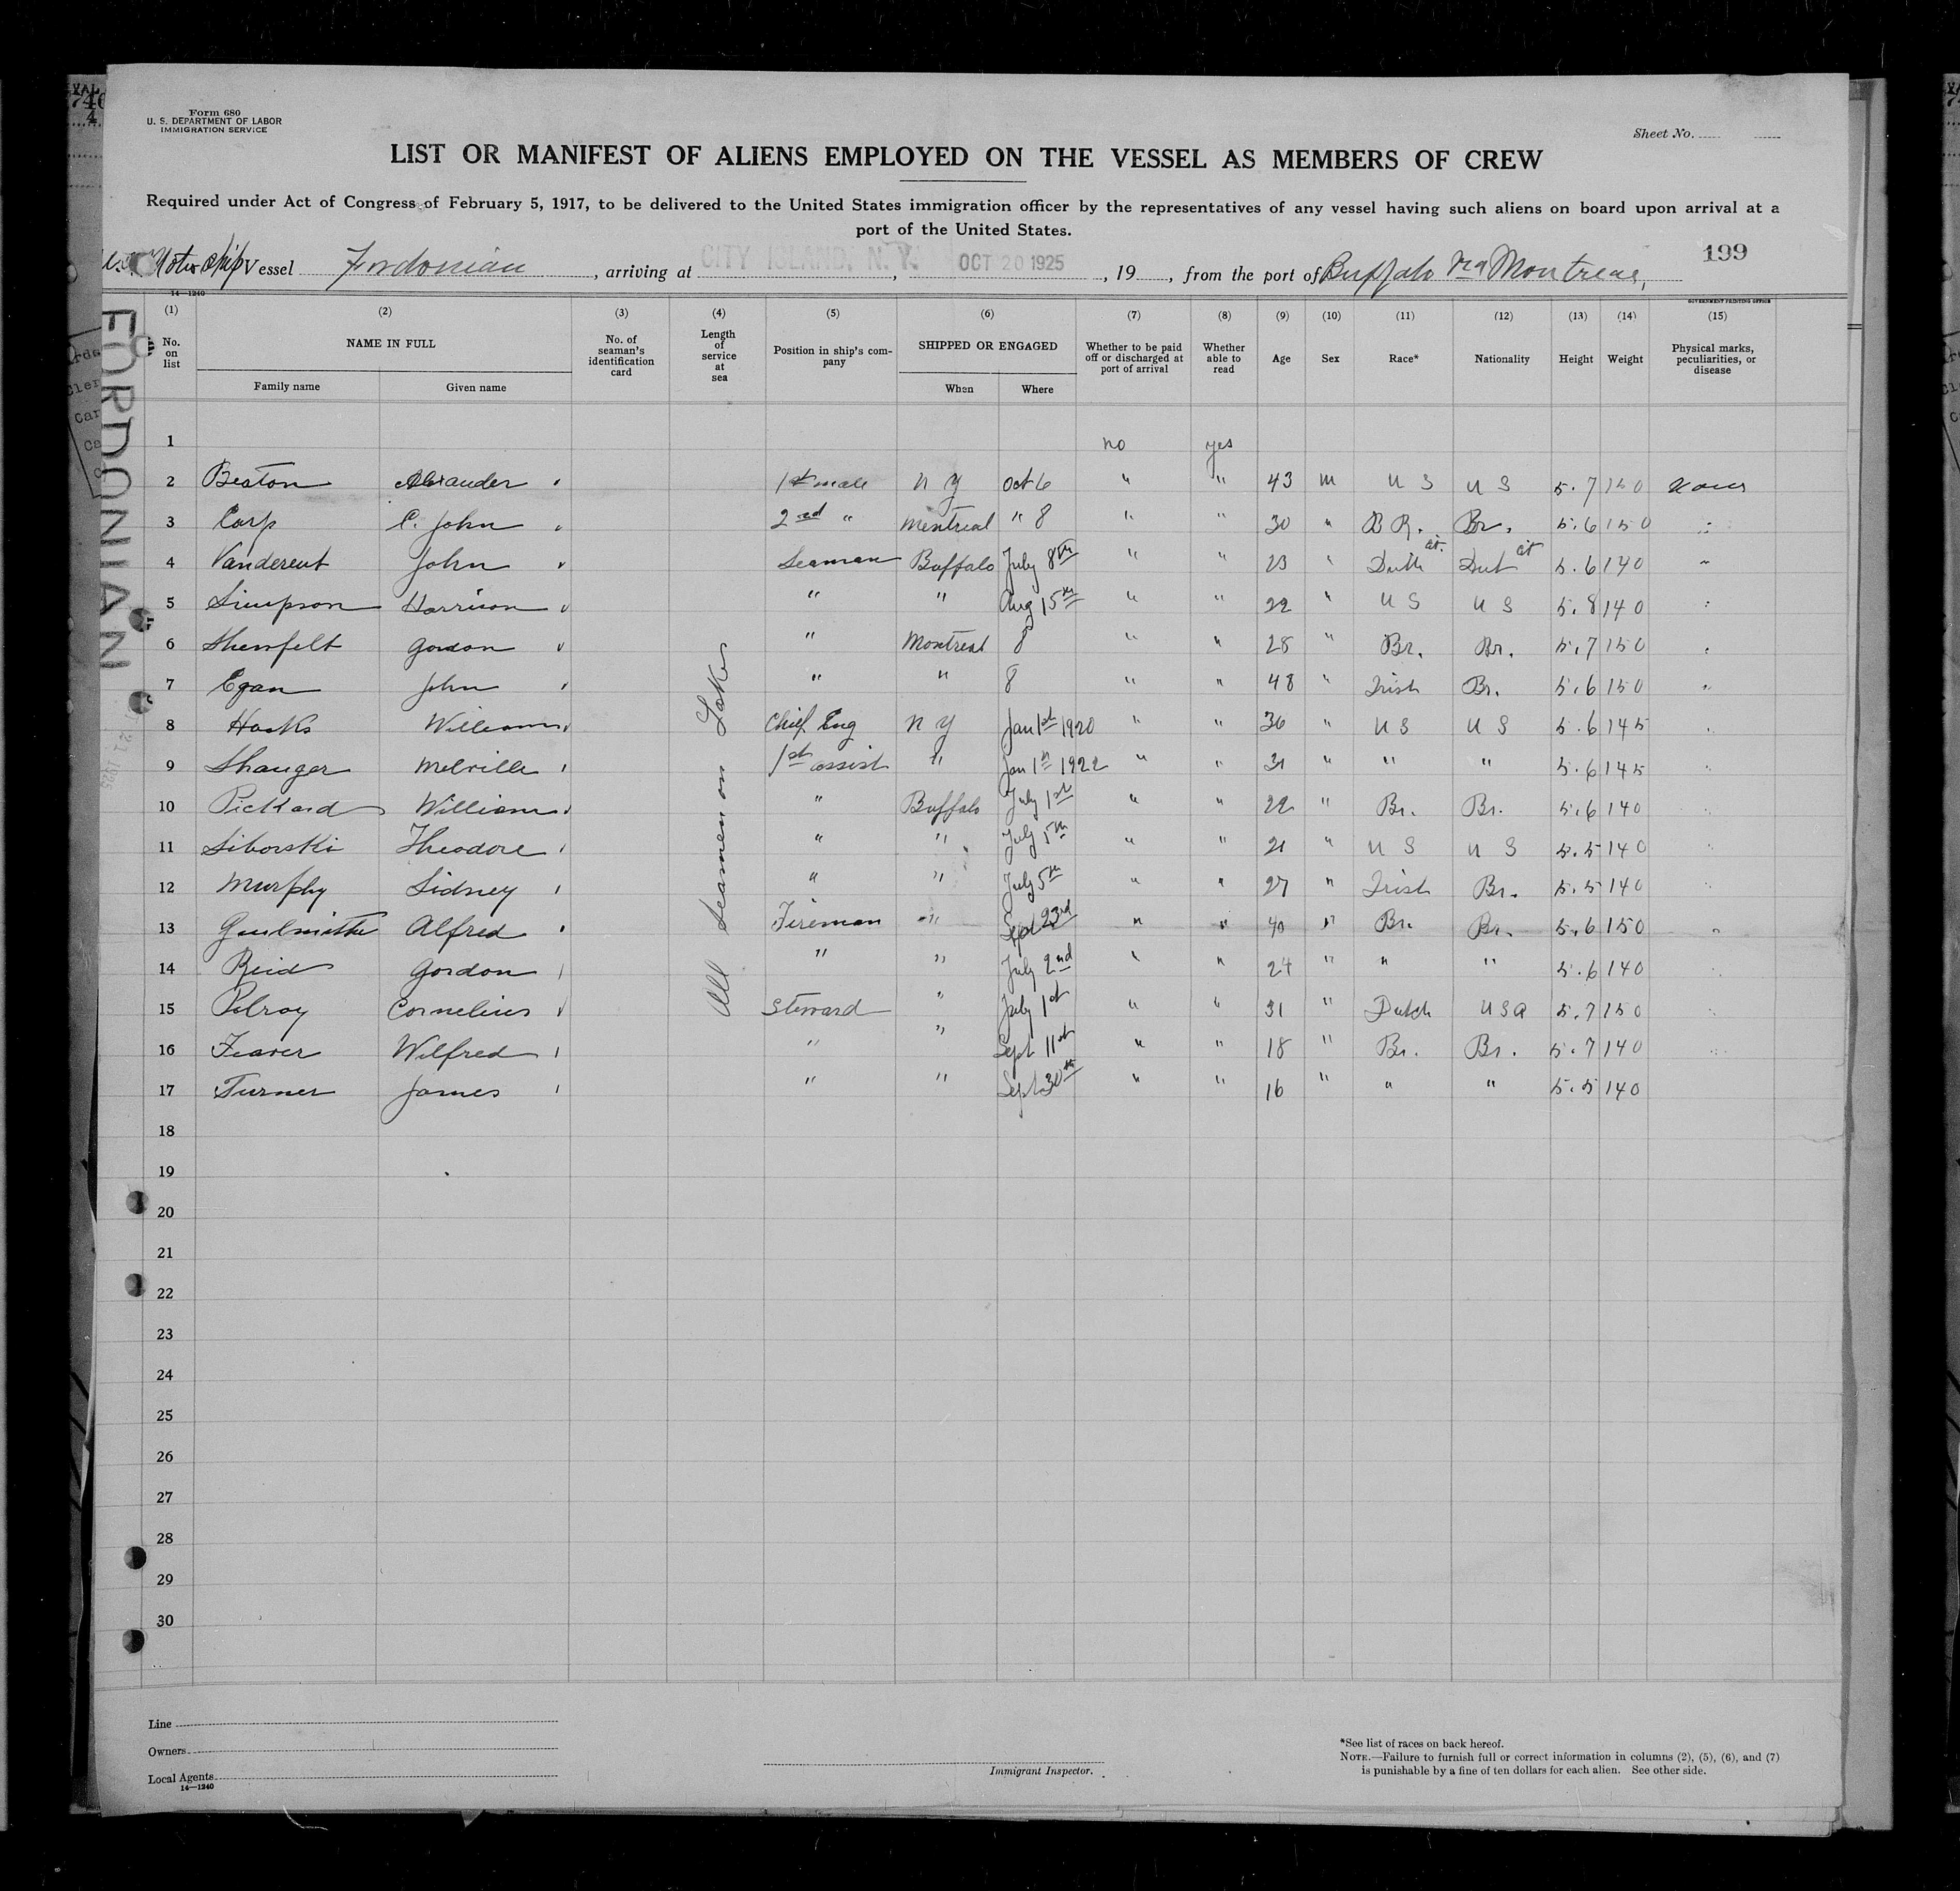 Form 680
U. S. DEPARTMENT OF LABOR
IMMIGRATION SERVICE
Sheet No.
LIST OR MANIFEST OF ALIENS EMPLOYED ON THE VESSEL AS MEMBERS OF CREW
Required under Act of Congress of February 5, 1917, to be delivered to the United States immigration officer by the representatives of any vessel having such aliens on board upon arrival at a
port of the United States.
199
Motor ship Vessel Fordonian, arriving at CITY ISLAND, N. Y., OCT 20 1925, 19, from the port of Buffalo via Montreal,
14—1240
GOVERNMENT PRINTING OFFICE
FORDONIAN
(1) (2) (3) (4) (5) (6) (7) (8) (9) (10) (11) (12) (13) (14) (15)
No. on list
NAME IN FULL
Family name
Given name
No. of seaman's identification card
Length of service at sea
Position in ship's company
SHIPPED OR ENGAGED
When
Where
Whether to be paid off or discharged at port of arrival
Whether able to read
Age
Sex
Race*
Nationality
Height
Weight
Physical marks, peculiarities, or disease
All Seamen on Lakes
1 no yes
2 Beaton Alexander 1st mate N Y Oct 6 " " 43 m U S U S 5.7 150
3 Earp C. John 2nd " Montreal " 8 " " 30 " B R. Br. 5.6 150 "
4 Vanderent John Seaman Buffalo July 8th " " 23 " Dutch cit. Dut cit 5.6 140 "
5 Simpson Harrison " " Aug 15th " " 22 " U S U S 5.8 140 "
6 Shenfelt Gordon " Montreal 8 " " 28 " Br. Br. 5.7 150 "
7 Egan John " " 8 " " 48 " Irish Br. 5.6 150 "
8 Hooks William Chief Eng N Y Jan 1st 1920 " " 36 " U S U S 5.6 145 "
9 Shauger Melville 1st assist " Jan 1st 1922 " " 31 " " " 5.6 145 "
10 Pickard William " Buffalo July 1st " " 22 " Br. Br. 5.6 140 "
11 Siborski Theodore " " July 5th " " 21 " U S U S 5.5 140 "
12 Murphy Sidney " " July 5th " " 27 " Irish Br. 5.5 140 "
13 Alfred Fireman " Sept 23rd " " 40 " Br. Br. 5.6 150 "
14 Reid Gordon " " July 2nd " " 24 " " " 5.6 140 "
15 Pelroy Cornelius Steward " July 1st " " 31 " Dutch U S A 5.7 150 "
16 Feaver Wilfred " " Sept 11st " " 18 " Br. Br. 5.7 140 "
17 Turner James " " Sept 30th " " 16 " " " 5.5 140
18
19
20
21
22
23
24
25
26
27
28
29
30
Line
Owners
Local Agents
14—1240
Immigrant Inspector.
*See list of races on back hereof.
NOTE.—Failure to furnish full or correct information in columns (2), (5), (6), and (7)
is punishable by a fine of ten dollars for each alien. See other side.